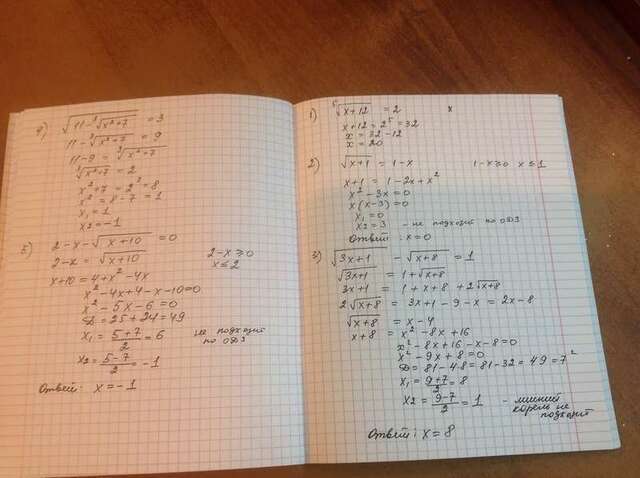 4) √(11-³√(x²+7)) = 3
11-³√(x²+7) = 9
11-9 = ³√(x²+7)
³√(x²+7) = 2
x²+7 = 2³ = 8
x² = 8-7 = 1
x₁ = 1
x₂ = -1
5) 2-x-√(x+10) = 0
2-x = √(x+10)   2-x ≥ 0
x+10 = 4+x²-4x   x ≤ 2
x²-4x+4-x-10=0
x²-5x-6=0
D=25+24=49
x₁ = (5+7)/2 = 6   не подходит по ОДЗ
x₂ = (5-7)/2 = -1
Ответ: x=-1
1) ⁵√(x+12) = 2   x
x+12=2⁵=32
x=32-12
x=20
2) √(x+1) = 1-x   1-x≥0 x≤1
x+1 = 1-2x+x²
x²-3x=0
x(x-3)=0
x₁=0
x₂=3 - не подходит по ОДЗ
Ответ: x=0
3) √(3x+1) - √(x+8) = 1
√(3x+1) = 1+√(x+8)
3x+1 = 1+x+8+2√(x+8)
2√(x+8) = 3x+1-9-x = 2x-8
√(x+8) = x-4
x+8 = x²-8x+16
x²-8x+16-x-8=0
x²-9x+8=0
D=81-4·8=81-32=49=7²
x₁ = (9+7)/2 = 8
x₂ = (9-7)/2 = 1 - лишний
корень не
подходит
Ответ: x=8